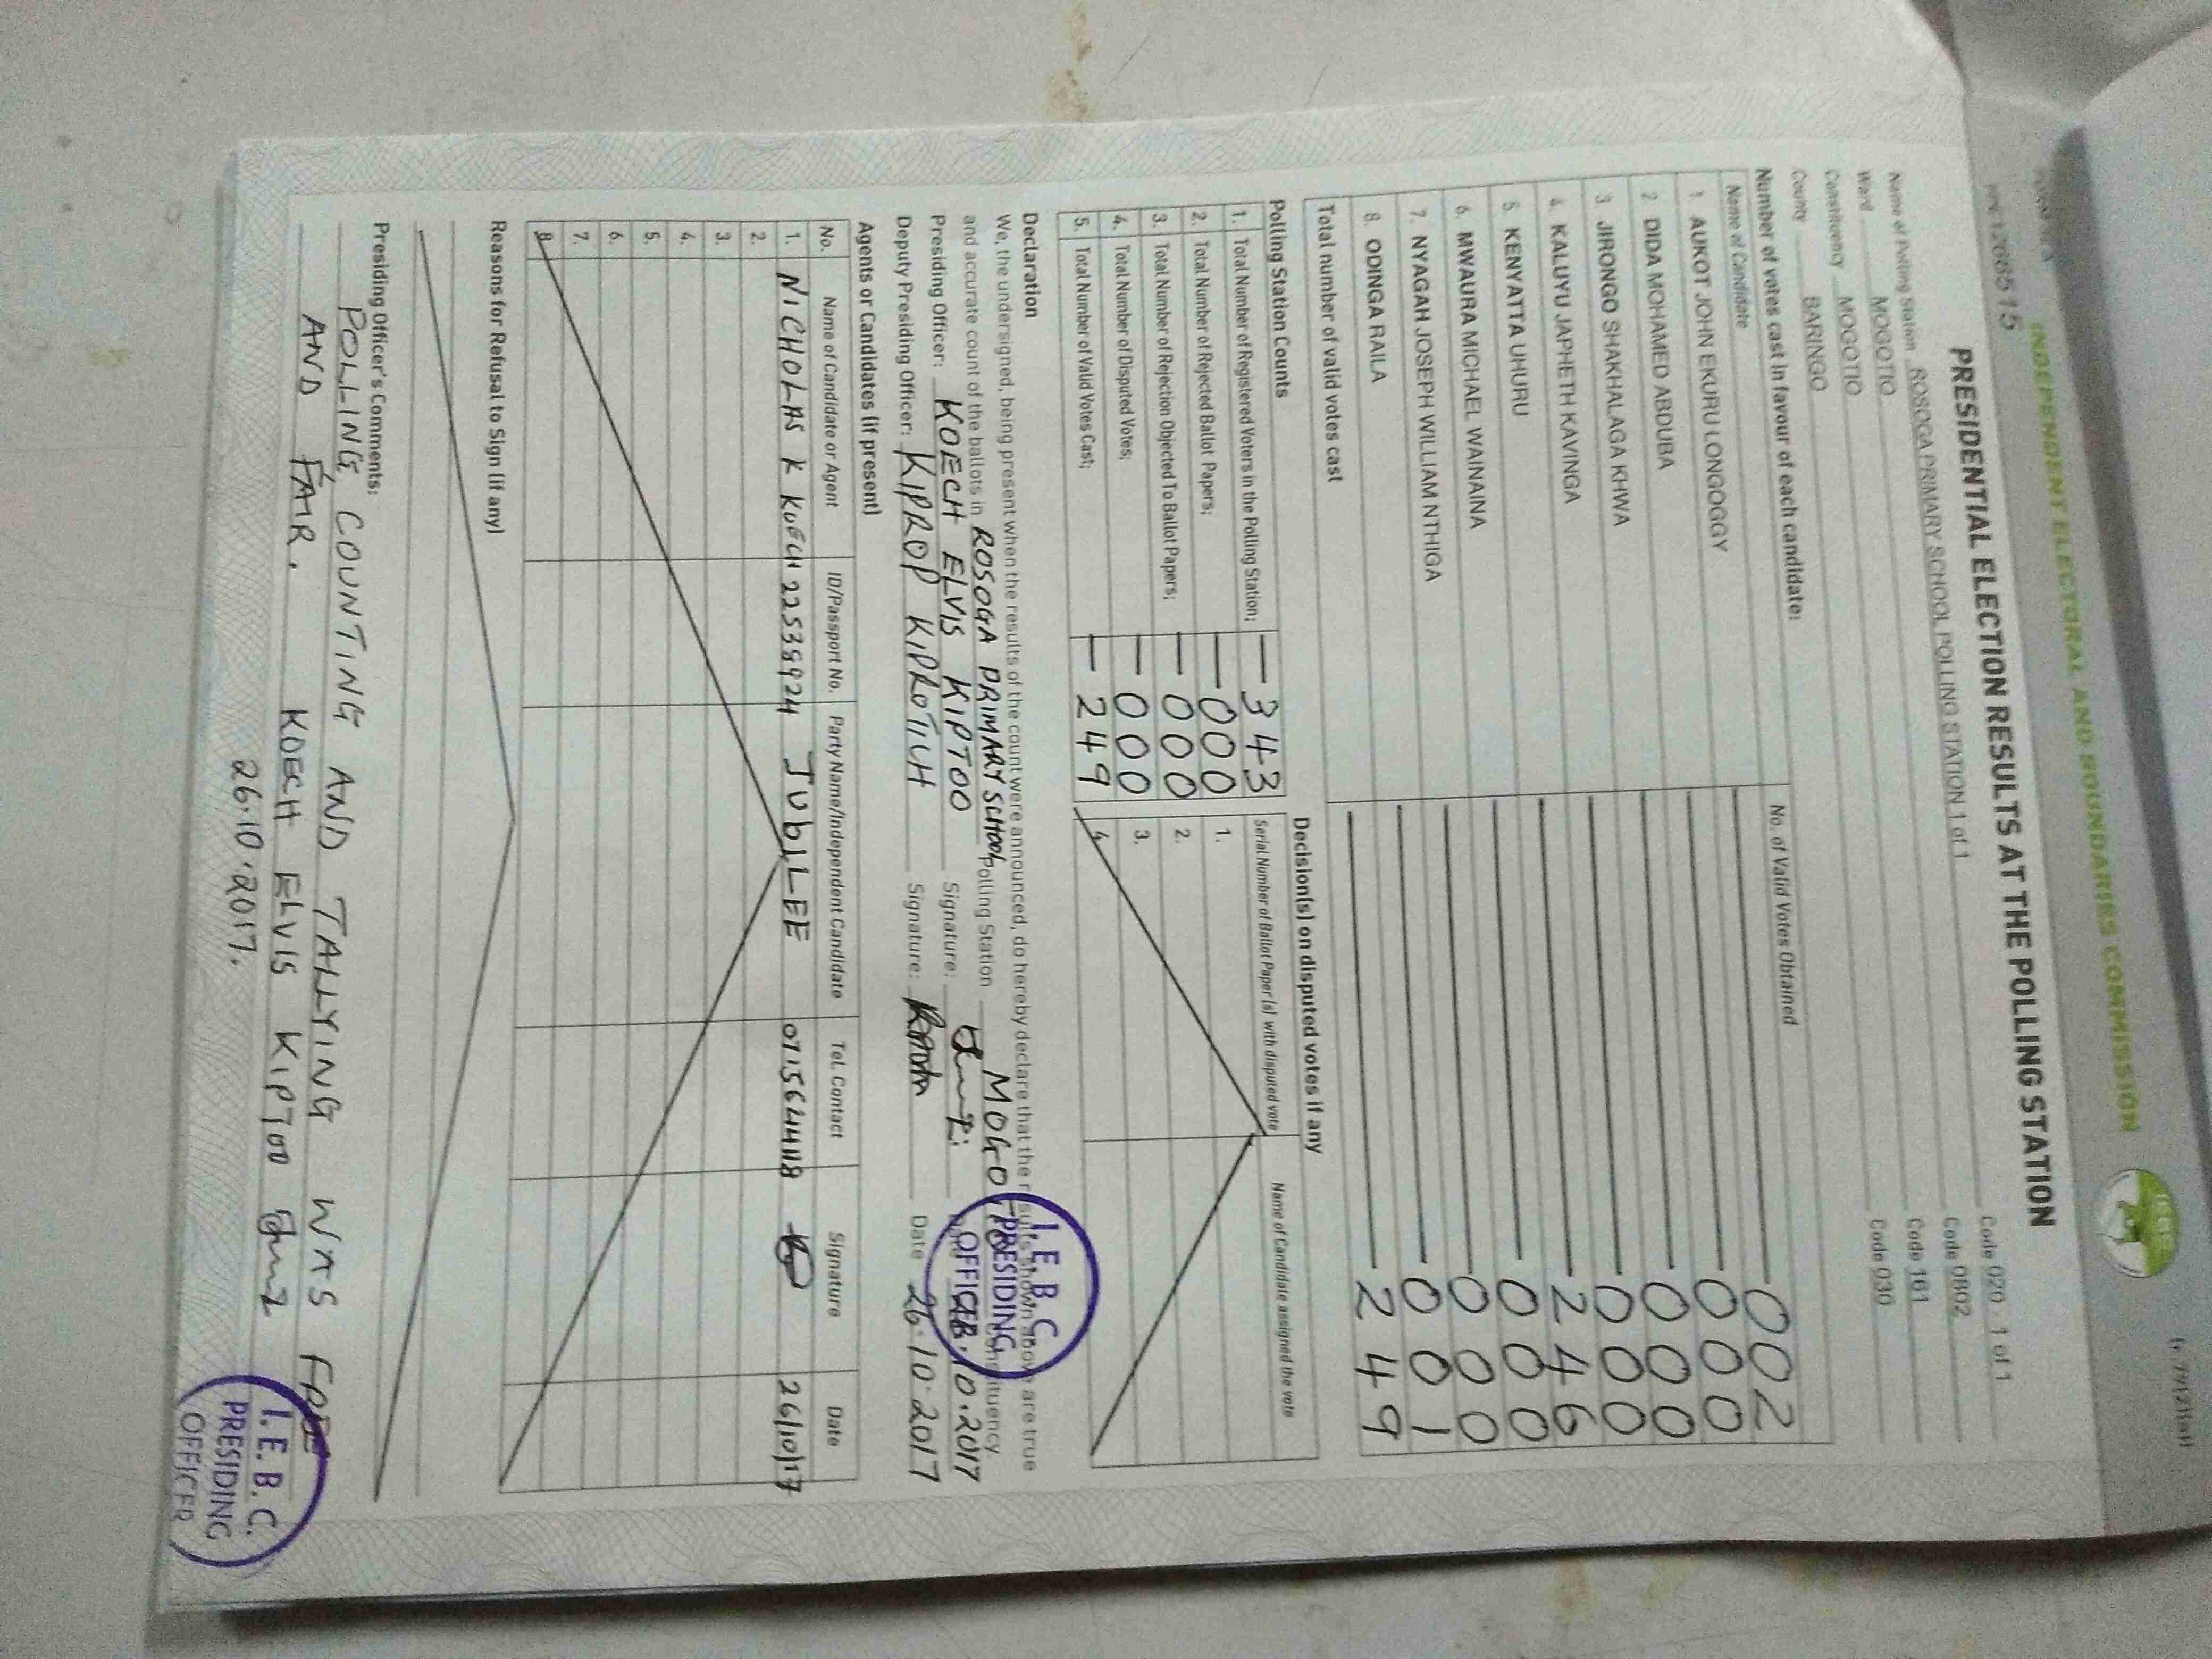 INDEPENDENT ELECTORAL AND BOUNDARIES COMMISSION
PRESIDENTIAL ELECTION RESULTS AT THE POLLING STATION
Name of Polling Station ROSOGA PRIMARY SCHOOL POLLING STATION 1 of 1 Code 020 1 of 1
Ward MOGOTIO Code 0802
Constituency MOGOTIO Code 161
County BARINGO Code 030
Number of votes cast in favour of each candidate:
Name of Candidate No. of Valid Votes Obtained
1. AUKOT JOHN EKURU LONGOGGY 002
2. DIDA MOHAMED ABDUBA 000
3. JIRONGO SHAKHALAGA KHWA 000
4. KALUYU JAPHETH KAVINGA 000
5. KENYATTA UHURU 246
6. MWAURA MICHAEL WAINAINA 000
7. NYAGAH JOSEPH WILLIAM NTHIGA 000
8. ODINGA RAILA 001
Total number of valid votes cast 249
Polling Station Counts Decision(s) on disputed votes if any
Serial Number of Ballot Paper(s) with disputed vote Name of Candidate assigned the vote
1. Total Number of Registered Voters in the Polling Station; 343 1.
2. Total Number of Rejected Ballot Papers; 000 2.
3. Total Number of Rejection Objected To Ballot Papers; 000 3.
4. Total Number of Disputed Votes; 000 4.
5. Total Number of Valid Votes Cast; 249
Declaration
We, the undersigned, being present when the results of the count were announced, do hereby declare that the results shown above are true
and accurate count of the ballots in ROSOGA PRIMARY SCHOOL Polling Station MOGOTIO Constituency.
Presiding Officer: KOECH ELVIS KIPTOO Signature: Date 26.10.2017
Deputy Presiding Officer: KIPROP KIPROTICH Signature: Date 26.10.2017
I.E.B.C.
PRESIDING
OFFICER
Agents or Candidates (if present)
No. Name of Candidate or Agent ID/Passport No. Party Name/Independent Candidate Tel. Contact Signature Date
1. NICHOLAS K KOECH 22538924 JUBILEE 0715644118 26/10/17
2.
3.
4.
5.
6.
7.
8.
Reasons for Refusal to Sign (if any)
Presiding Officer's Comments:
POLLING, COUNTING AND TALLYING WAS FREE
AND FAIR. KOECH ELVIS KIPTOO
26.10.2017.
I.E.B.C.
PRESIDING
OFFICER